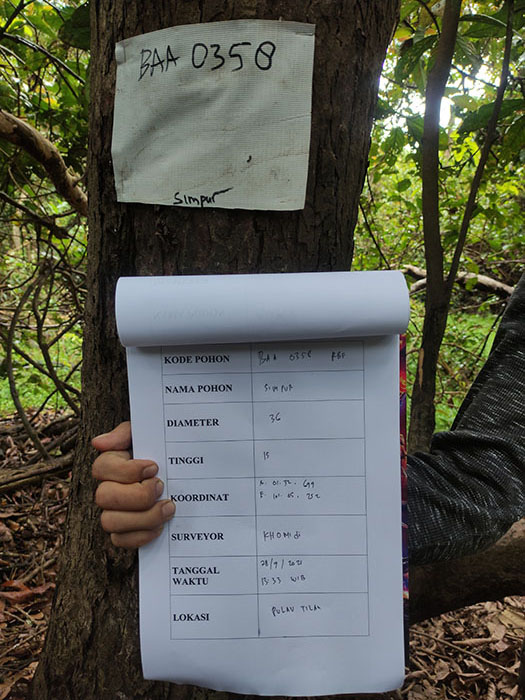 BAA 0358
Simpur
KODE POHON BAA 0358
NAMA POHON SIMPUR
DIAMETER 36
TINGGI 15
KOORDINAT N. 01. 32. 699
E. 101. 05. 232
SURVEYOR KHOMIDI
TANGGAL WAKTU 28/9/2021
13:33 WIB
LOKASI PULAU TILAN